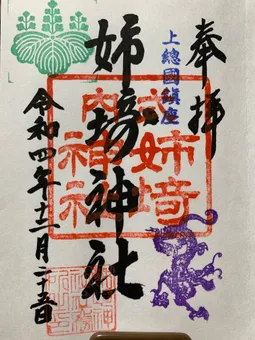 奉拝
上總國鎮座
姉﨑神社
式内
姉埼
神社
令和四年十二月二十五日